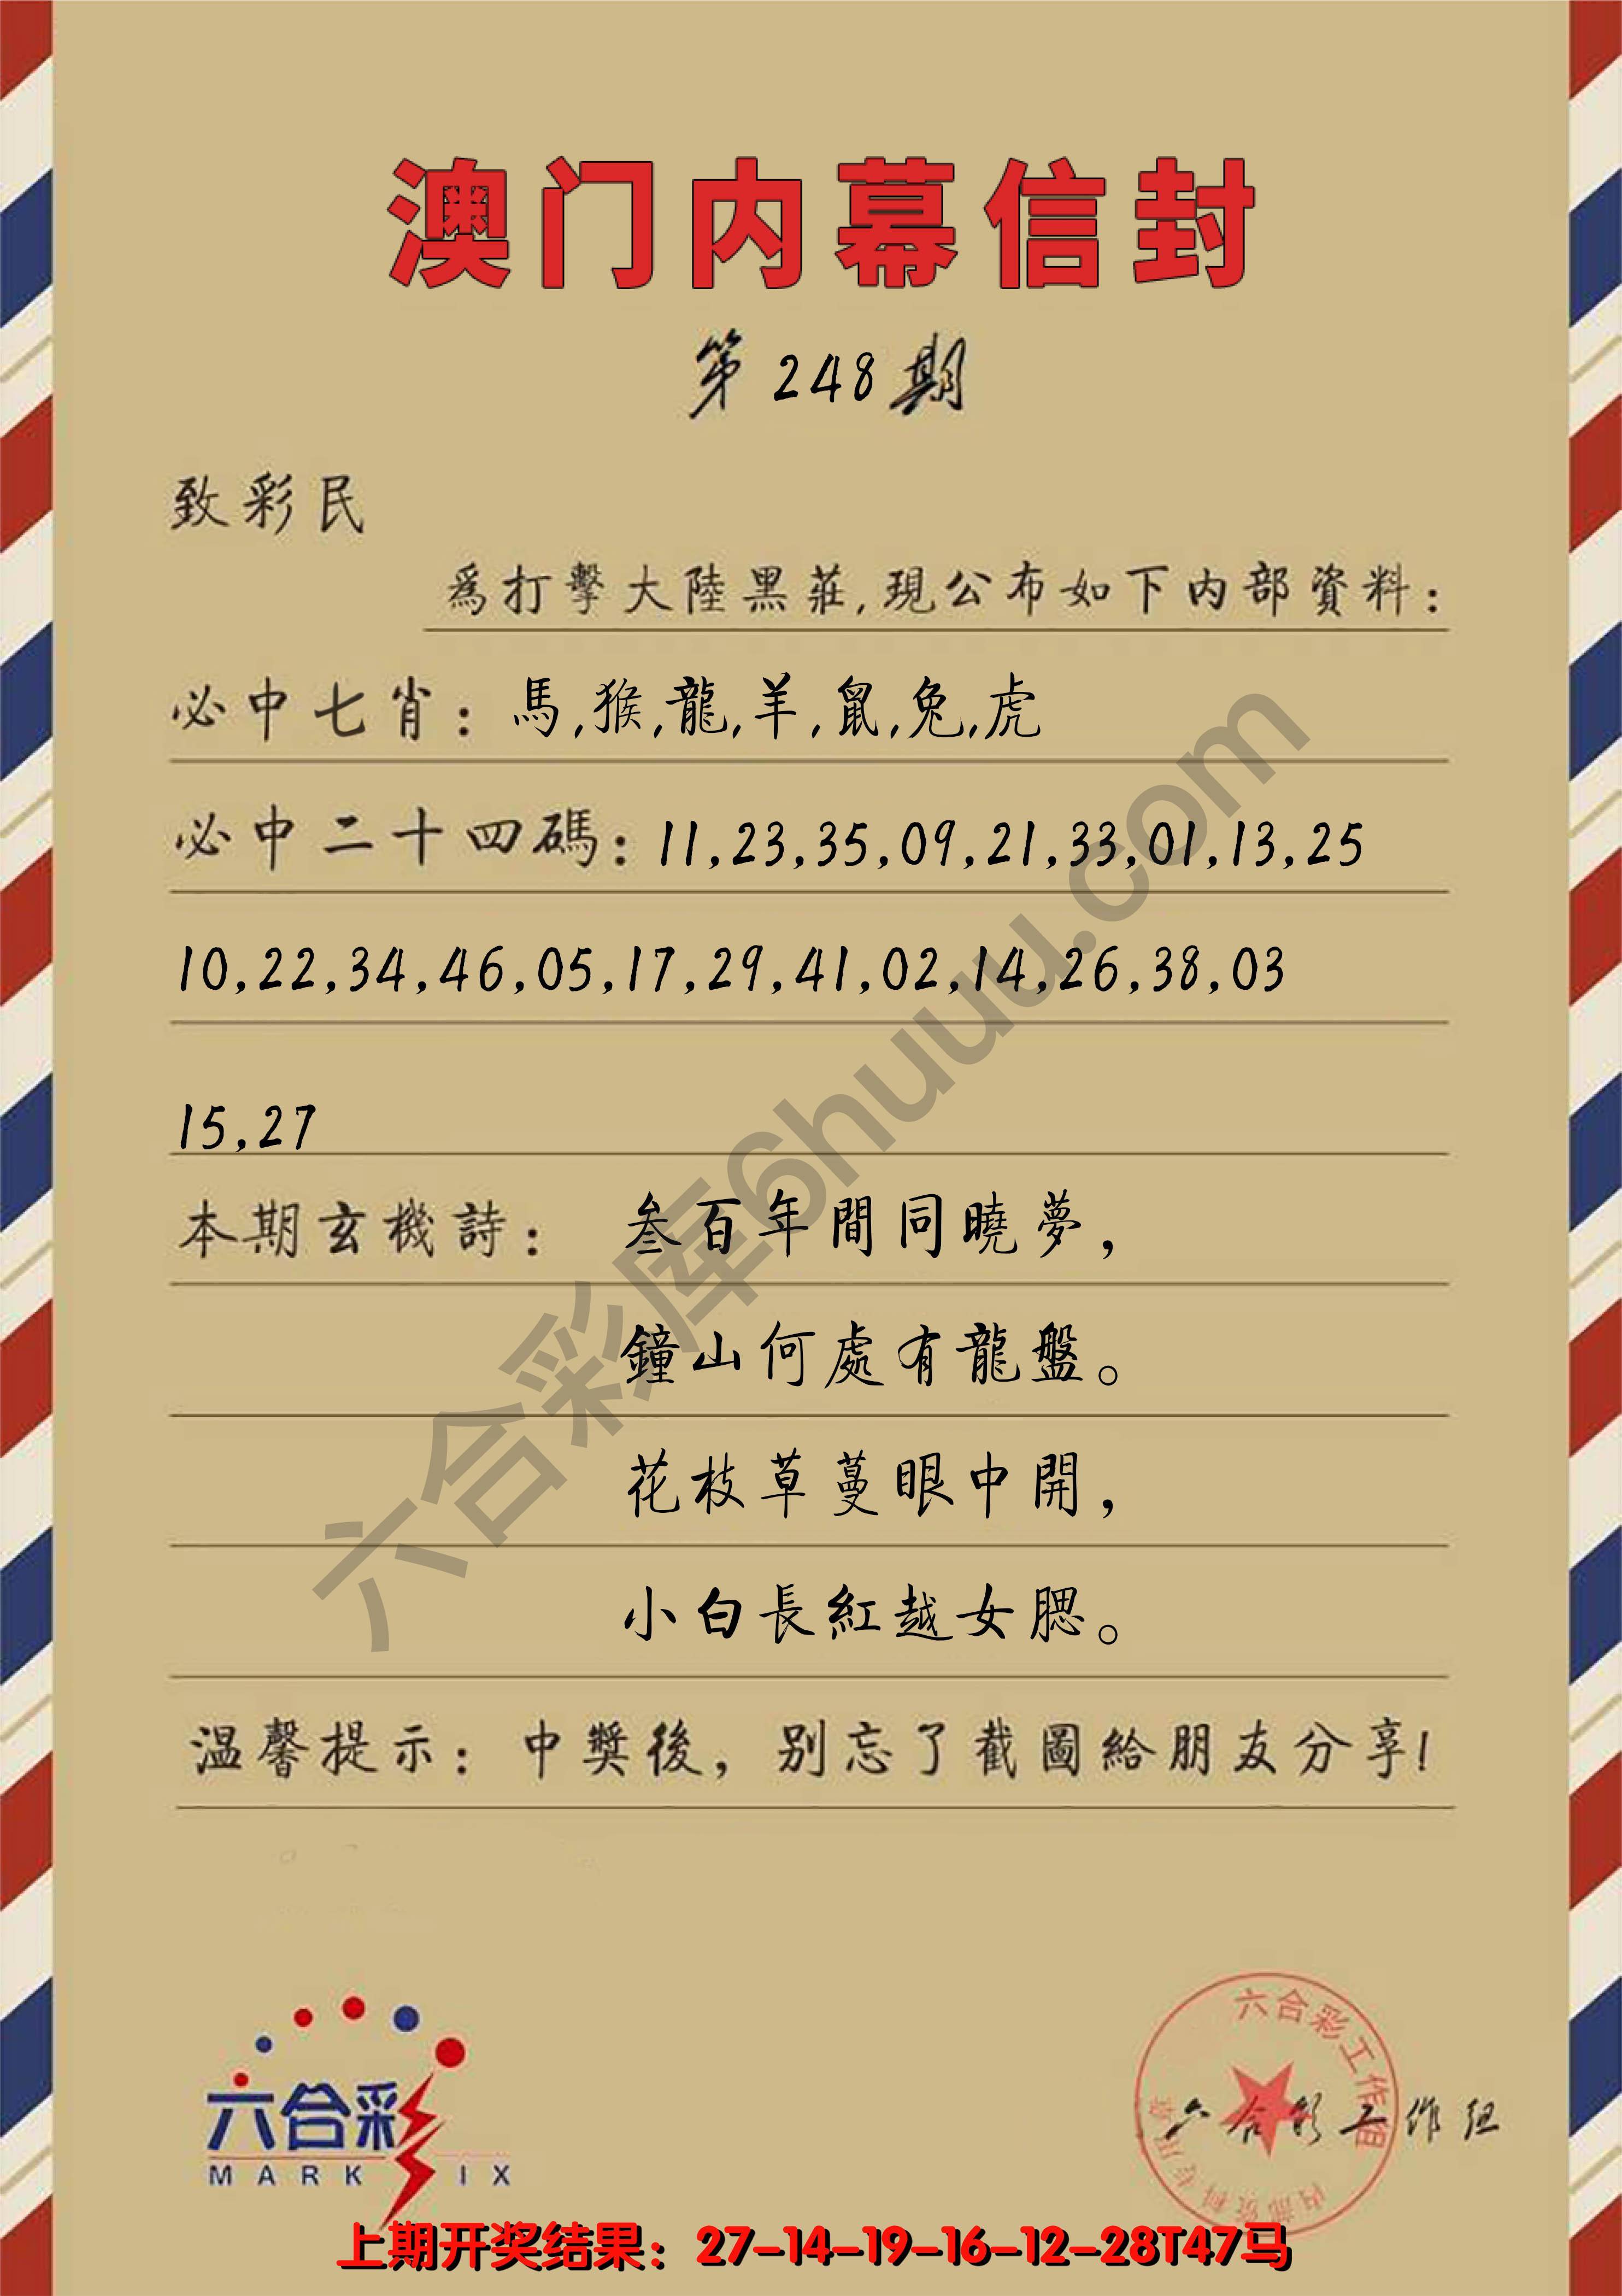 澳门内幕信封
第248期
致彩民
爲打擊大陸黑莊,現公布如下内部資料:
必中七肖: 馬,猴,龍,羊,鼠,兔,虎
必中二十四碼: 11,23,35,09,21,33,01,13,25
10,22,34,46,05,17,29,41,02,14,26,38,03
15,27
本期玄機詩: 叁百年間同曉夢,
鐘山何處有龍盤。
花枝草蔓眼中開,
小白長紅越女腮。
温馨提示: 中獎後, 别忘了截圖給朋友分享!
六合彩库6huuu.com
六合彩
MARK IX
六合彩工作组
内部资料专用章
六合彩工作组
上期开奖结果: 27-14-19-16-12-28T47马